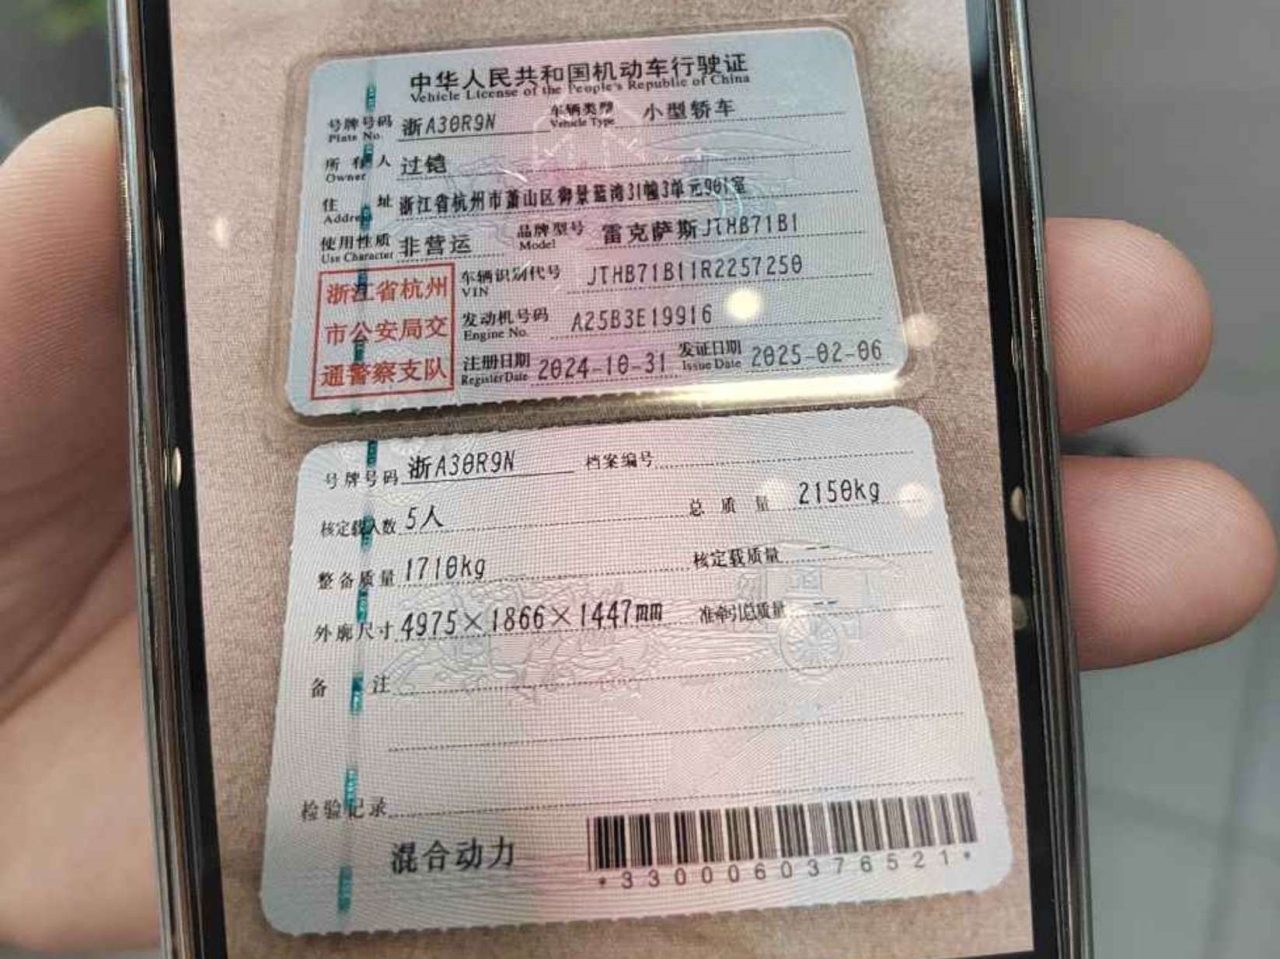 中华人民共和国机动车行驶证
Vehicle License of the People's Republic of China
号牌号码 浙A30R9N 车辆类型 小型轿车
Plate No. Vehicle Type
所有人 过铠
Owner
住址 浙江省杭州市萧山区御景蓝湾31幢3单元901室
Address
使用性质 非营运 品牌型号 雷克萨斯JTHB71B1
Use Character Model
浙江省杭州
市公安局交
通警察支队
车辆识别代号 JTHB71B11R2257250
VIN
发动机号码 A25B3E19916
Engine No.
注册日期 2024-10-31 发证日期 2025-02-06
Register Date Issue Date
号牌号码 浙A30R9N 档案编号
核定载人数 5人 总质量 2150kg
整备质量 1710kg 核定载质量 --
外廓尺寸 4975×1866×1447mm 准牵引总质量 --
备注
检验记录
混合动力
*3300060376521*